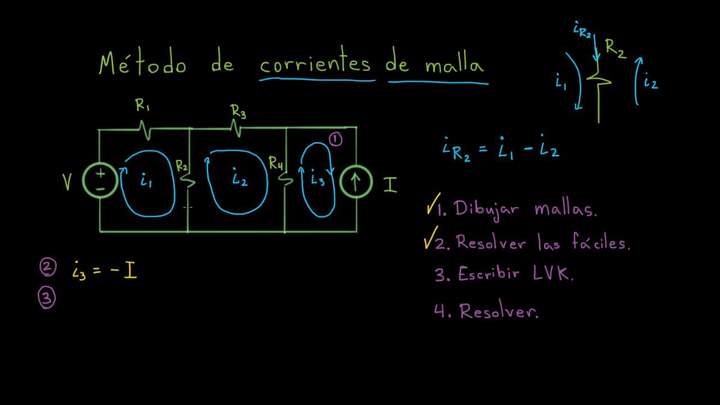 Método de corrientes de malla
i_R2
R2
i1
i2
R1
R3
①
V
+
−
i1
R2
i2
R4
i3
I
i_R2 = i1 - i2
✓1. Dibujar mallas.
✓2. Resolver las fáciles.
3. Escribir LVK.
4. Resolver.
② i3 = -I
③